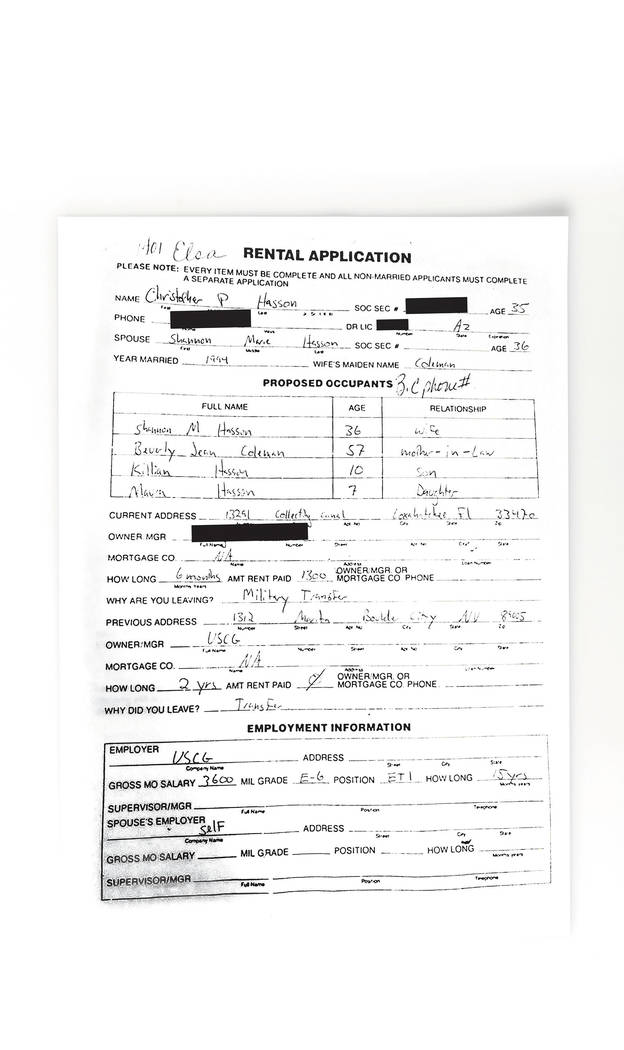 1401 Elsa RENTAL APPLICATION
PLEASE NOTE: EVERY ITEM MUST BE COMPLETE AND ALL NON-MARRIED APPLICANTS MUST COMPLETE
A SEPARATE APPLICATION
NAME Christopher P Hasson SOC SEC # AGE 35
First Last
PHONE DR LIC AZ
Number State Expiration
SPOUSE Shannon Marie Hasson SOC SEC # AGE 36
First Middle Last
YEAR MARRIED 1994 WIFE'S MAIDEN NAME Coleman
PROPOSED OCCUPANTS B.C phone#
FULL NAME AGE RELATIONSHIP
Shannon M Hasson 36 wife
Beverly Jean Coleman 57 mother-in-Law
Killian Hasson 10 Son
Hasson 7 Daughter
CURRENT ADDRESS 13251 Collecting canal Loxahatchee Fl 33470
Apt No City State Zip
OWNER MGR
Full Name Number Street Apt No City State
MORTGAGE CO. NA
Name Address Loan Number
HOW LONG 6 months AMT RENT PAID 1300 OWNER/MGR. OR
MORTGAGE CO. PHONE
Months Years
WHY ARE YOU LEAVING? Military Transfer
PREVIOUS ADDRESS 1312 City NV
Number Street Apt No City State Zip
OWNER/MGR USCG
Full Name Number Street Apt No City State
MORTGAGE CO. NA
Name Address Loan Number
HOW LONG 2 yrs AMT RENT PAID OWNER/MGR. OR
MORTGAGE CO. PHONE
WHY DID YOU LEAVE? Transfer
EMPLOYMENT INFORMATION
EMPLOYER USCG ADDRESS
Company Name Street City State
GROSS MO SALARY 3600 MIL GRADE E-6 POSITION ET1 HOW LONG 15 yrs
Months years
SUPERVISOR/MGR
Full Name Position Telephone
SPOUSE'S EMPLOYER self ADDRESS
Company Name Street City State
GROSS MO SALARY MIL GRADE POSITION HOW LONG
Months years
SUPERVISOR/MGR
Full Name Position Telephone